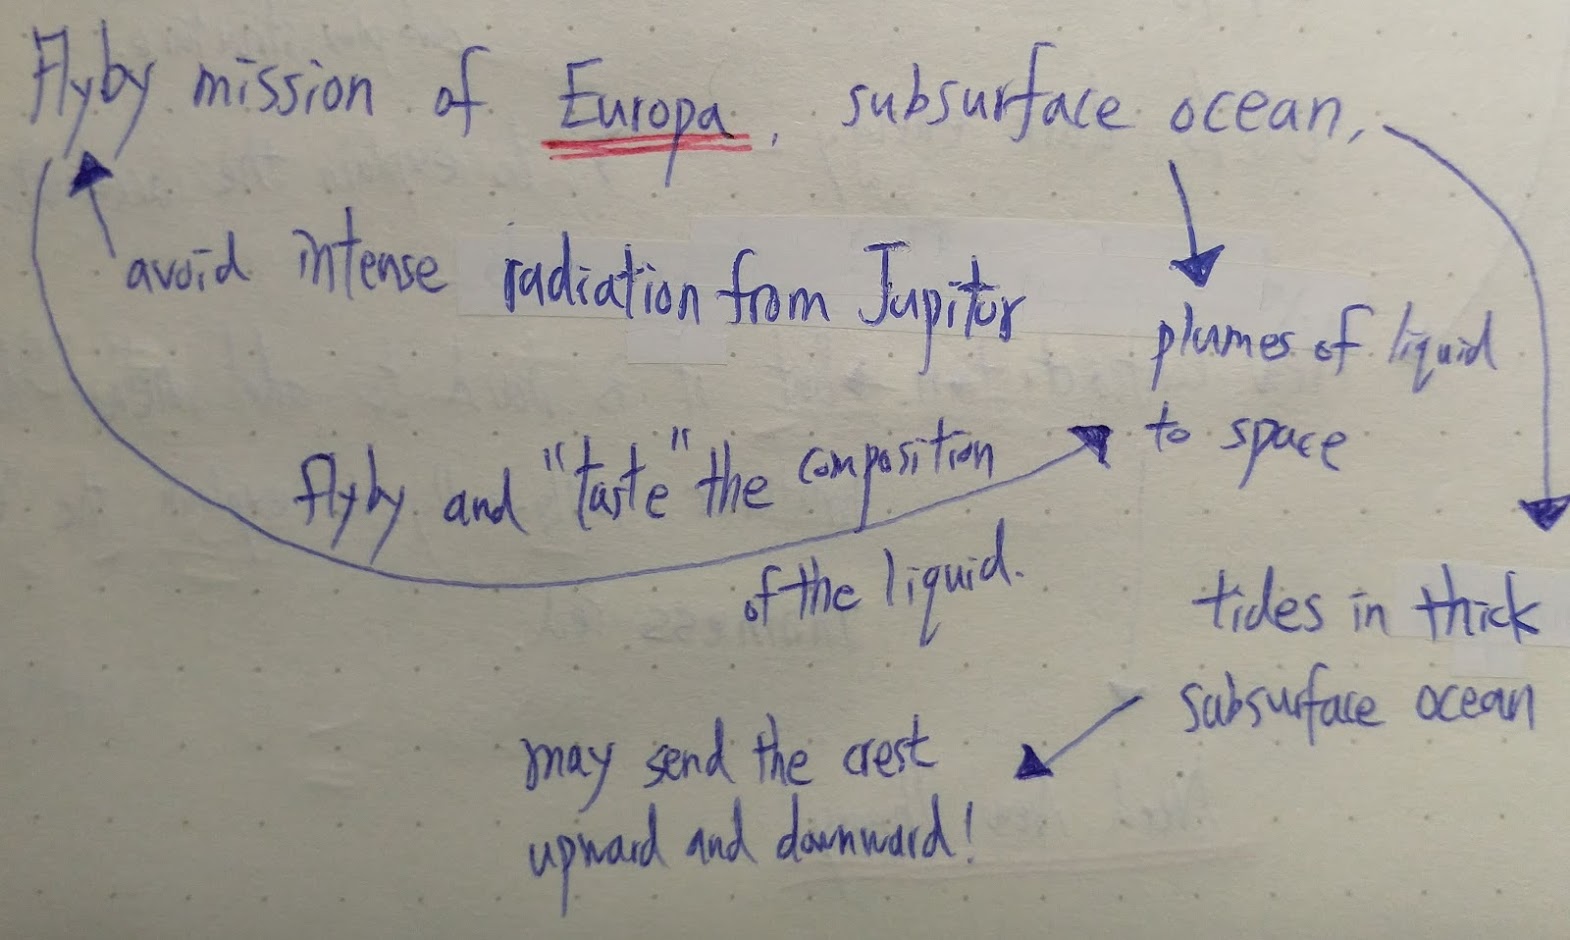 Flyby mission of Europa, subsurface ocean,
avoid intense radiation from Jupitur
plumes of liquid
to space
flyby and "taste" the composition
of the liquid.
tides in thick
subsurface ocean
may send the crest
upward and downward!